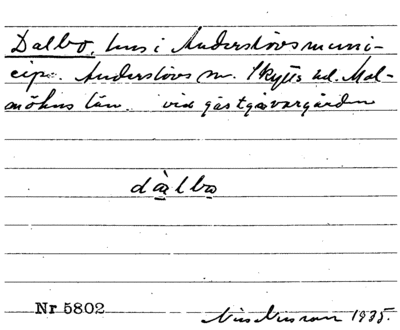 Dalbo, hus i Anderslövs muni-
cip. Anderslövs sn. Skytts hd. Mal-
möhus län. vid gästgivargården
dàlbo
Nr 5802
1935.